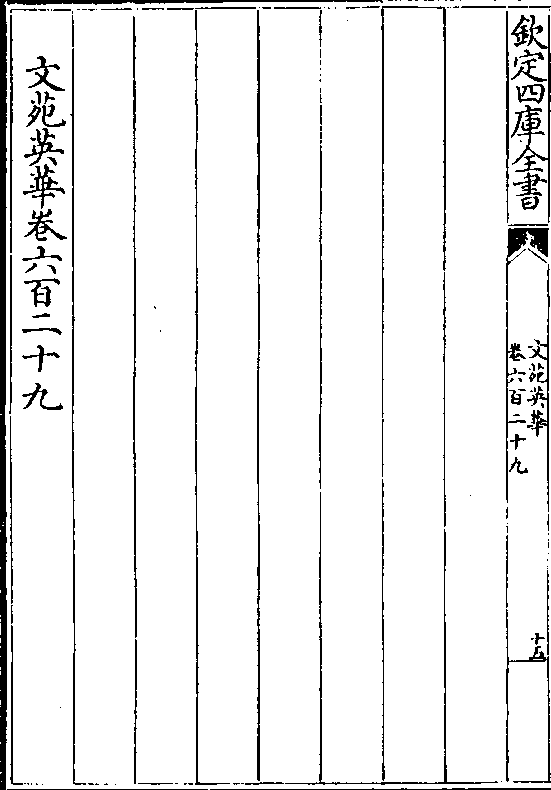 欽定四庫全書
文苑英華
卷六百二十九
十五
文苑英華卷六百二十九